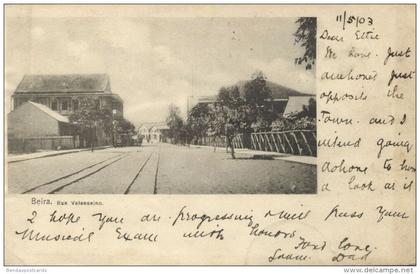 11/5/03
Dear Ettie
We have just
anchored just
opposite the
Town. and I
intend going
ashore to have
a look at it
Beira. Rua Valsassino.
I hope you are progressing & will pass your
Musical Exam with honors.
Fond love.
Dad
Benday postcards
www.delcampe.net